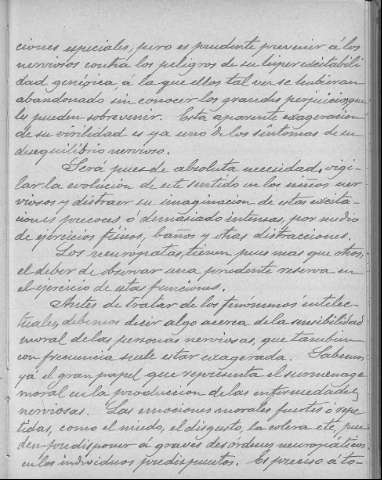 ciones especiales, pero es prudente prevenir á los
nerviosos contra los peligros de su hiperexcitabili
dad genésica, á la que ellos tal vez se hubieran
abandonado sin conocer los grandes perjuicios que
les pueden sobrevenir. Esta aparente exageración
de su virilidad es ya uno de los síntomas de su
desequilibrio nervioso.
Será pues de absoluta necesidad, vigi-
lar la evolución de este sentido en los niños ner
viosos y distraer su imaginacion de estas excita-
ciones precoces ó demasiado intensas, por medio
de ejercicios físicos, baños y otras distracciones.
Los neuropatas, tienen pues mas que otros,
el deber de observar una prudente reserva en
el ejercicio de estas funciones.
Antes de tratar de los fenómenos intelec-
tuales, debemos decir algo acerca de la sensibilidad
moral de las personas nerviosas, que tambien
con frecuencia suele estar exagerada. Sabemos
yá el gran papel que representa el surmenage
moral en la producción de las enfermedades
nerviosas. Las emociones morales fuertes ó repe-
tidas, como el miedo, el disgusto, la cólera etc, pue-
den predisponer á graves desórdenes neuropáticos
en los individuos predispuestos. Es preciso á to-